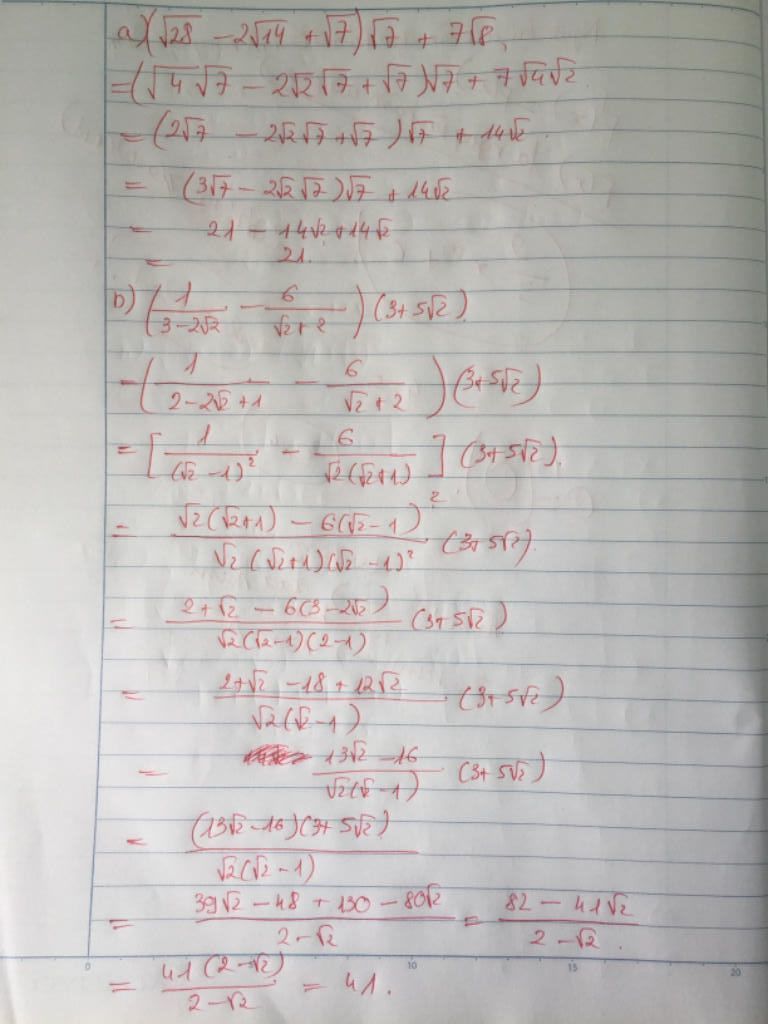 a) (√28 - 2√14 + √7)√7 + 7√8.
= (√4√7 - 2√2√7 + √7)√7 + 7√4√2
= (2√7 - 2√2√7 + √7)√7 + 14√2
= (3√7 - 2√2√7)√7 + 14√2
= 21 - 14√2 + 14√2
= 21.
b) (1/(3-2√2) - 6/(√2+2))(3+5√2)
= (1/(2-2√2+1) - 6/(√2+2))(3+5√2)
= [1/(√2-1)² - 6/(√2(√2+1))](3+5√2).
= (√2(√2+1) - 6(√2-1)²)/(√2(√2+1)(√2-1)²) (3+5√2).
= (2+√2 - 6(3-2√2))/(√2(√2-1)(2-1)) (3+5√2)
= (2+√2 - 18 + 12√2)/(√2(√2-1)) (3+5√2)
= (13√2 - 16)/(√2(√2-1)) (3+5√2)
= ((13√2-16)(3+5√2))/(√2(√2-1))
= (39√2 - 48 + 130 - 80√2)/(2-√2) = (82 - 41√2)/(2-√2).
= (41(2-√2))/(2-√2) = 41.
0 10 15 20